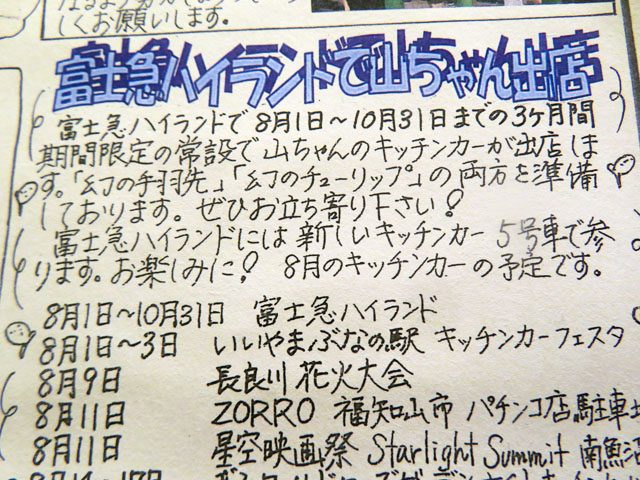 しくお願いします。
富士急ハイランドで山ちゃん出店
富士急ハイランドで8月1日～10月31日までの3ヶ月間
期間限定の常設で山ちゃんのキッチンカーが出店しま
す。「幻の手羽先」「幻のチューリップ」の両方を準備
しております。ぜひお立ち寄り下さい！
富士急ハイランドには新しいキッチンカー5号車で参
ります。お楽しみに！ 8月のキッチンカーの予定です。
8月1日～10月31日 富士急ハイランド
8月1日～3日 いいやまぶなの駅 キッチンカーフェスタ
8月9日 長良川花火大会
8月11日 ZORRO 福知山市 パチンコ店駐車
8月11日 星空映画祭 Starlight Summit 南魚沼